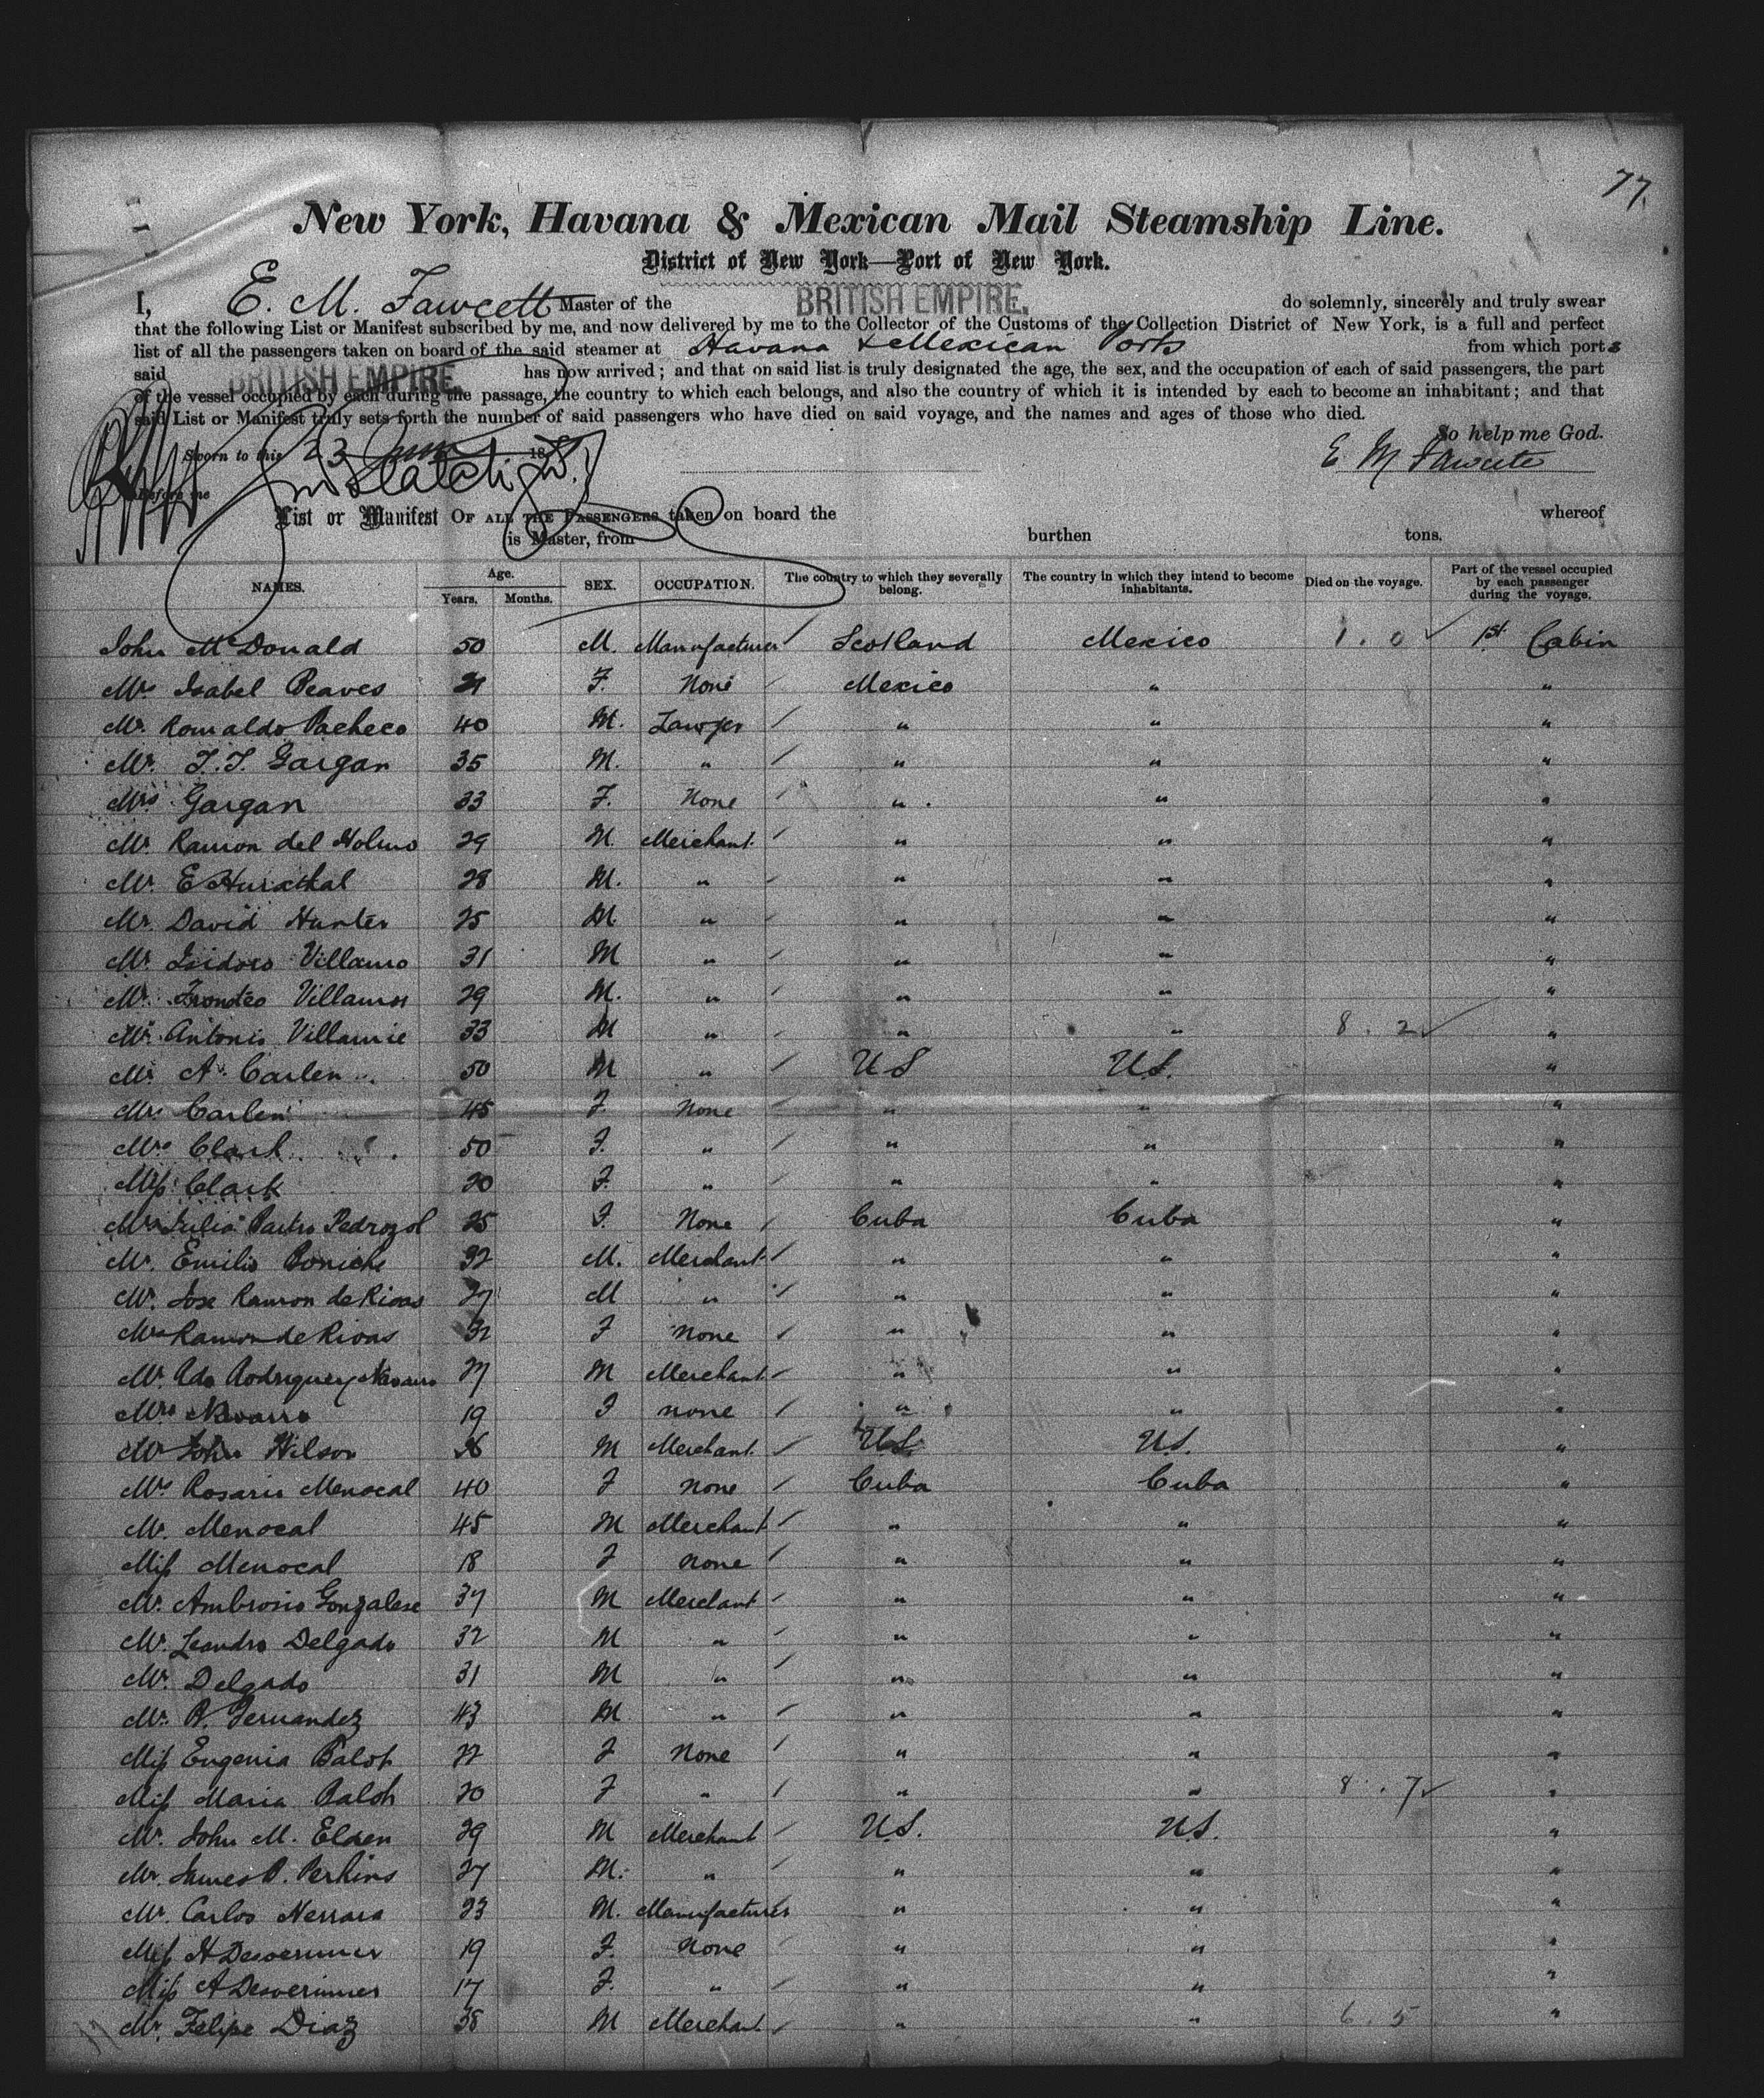 77.
New York, Havana & Mexican Mail Steamship Line.
District of New York—Port of New York.
I, E. M. Fawcett Master of the BRITISH EMPIRE. do solemnly, sincerely and truly swear
that the following List or Manifest subscribed by me, and now delivered by me to the Collector of the Customs of the Collection District of New York, is a full and perfect
list of all the passengers taken on board of the said steamer at Havana & Mexican Ports from which ports
said BRITISH EMPIRE. has now arrived; and that on said list is truly designated the age, the sex, and the occupation of each of said passengers, the part
of the vessel occupied by each during the passage, the country to which each belongs, and also the country of which it is intended by each to become an inhabitant; and that
said List or Manifest truly sets forth the number of said passengers who have died on said voyage, and the names and ages of those who died.
So help me God.
Sworn to this 23 18 E M Fawcett
Before me
List or Manifest OF ALL THE PASSENGERS taken on board the whereof
is Master, from burthen tons.
NAMES. Age. Years. Months. SEX. OCCUPATION. The country to which they severally belong. The country in which they intend to become inhabitants. Died on the voyage. Part of the vessel occupied by each passenger during the voyage.
John McDonald 50 M. Manufacturer Scotland Mexico 1 . 0 1st Cabin
Mrs Isabel Reaves 21 F. None Mexico " "
Mr. Romaldo Pacheco 40 M. Lawyer " " "
Mr. T. T. Gargan 35 M. " " " "
Mrs Gargan 33 F. None " " "
Mr. Ramon del Holmo 29 M. Merchant " " "
Mr. E 28 M. " " " "
Mr. David Hunter 25 M. " " " "
Mr. Isidoro Villamo 31 M " " " "
Mr. Villamor 29 M. " " " "
Mr. Antonio Villamie 33 M " " " 8 . 2 "
Mr. A. Carlen 50 M " U S U.S. "
Mrs Carlen 45 F None " " "
Mrs Clark 50 F. " " " "
Miss Clark 20 F. " " " "
Mrs Julia Pedrozol 25 F. None Cuba Cuba "
Mr. Emilio 32 M. Merchant " " "
Mr. Jose Ramon de Rivas 27 M " " " "
Mrs Ramon de Rivas 32 F None " " "
Mr. Ado Rodriguez Navarro 27 M Merchant " " "
Mrs Navarro 19 F none " " "
Mr John Wilson M Merchant U.S. U.S. "
Mrs Rosario Menocal 40 F none Cuba Cuba "
Mr. Menocal 45 M Merchant " " "
Miss Menocal 18 F None " " "
Mr. Ambrosio Gonzalese 37 M Merchant " " "
Mr. Leandro Delgado 32 M " " " "
Mr. Delgado 31 M " " " "
Mr. R. Fernandez 43 M " " " "
Miss Eugenia 22 F None " " "
Miss Maria 20 F " " " 8 . 7 "
Mr. John M. Elden 29 M Merchant U.S. U.S. "
Mr. James P. Perkins 27 M. " " " "
Mr. Carlos 23 M. Manufacturer " " "
Miss H 19 F. None " " "
Miss A 17 F. " " " "
Mr. Felipe Diaz 38 M Merchant " " 6 . 5 "